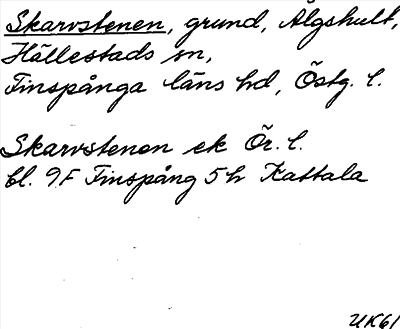 Skarvstenen, grund, Älgshult,
Hällestads sn,
Finspånga läns hd, Östg. l.
Skarvstenen ek Ör. l.
bl. 9F Finspång 5h Kattala
UK61